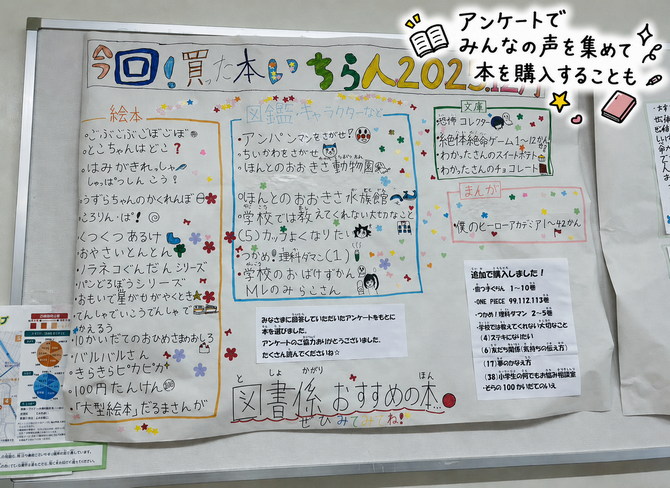 アンケートで
みんなの声を集めて
本を購入することも
今回!買った本いちらん202
絵本
・ごぶごぶごぼごぼ
・とこちゃんはどこ?
・はみがきれっしゃ
しゅっぱつしんこう!
・うずらちゃんのかくれんぼ
・ころりん・ぱ!
・くつくつあるけ
・おやさいとんとん
・ノラネコぐんだんシリーズ
・パンどろぼうシリーズ
・おもいで星がかがやくとき
・てんしゃでいこうでんしゃで
かえろう
・10かいだてのおひめさまのおしろ
・バルバルさん
・きらきらピカピカ
・100円たんけん
・「大型絵本」だるまさんが
図鑑・キャラクターなど
・アンパンマンをさがせ?
・ちいかわをさがせ
・ほんとのおおきさ動物園
・ほんとのおおきさ水族館
・学校では教えてくれない大切なこと
(5)カッコよくなりたい
・つかめ!理科ダマン(1)
・学校のおばけずかん
・MLのみらこさん
文庫
・恐怖コレクター
・絶体絶命ゲーム1〜12かん
・わかったさんのスイートポテト
・わかったさんのチョコレート
まんが
・僕のヒーローアカデミア1〜42かん
みなさまに回答していただいたアンケートをもとに
本を選びました。
アンケートのご協力ありがとうございました。
たくさん読んでくださいね☆
追加で購入しました!
・街っ子ぐらし 1〜10巻
・ONE PIECE 99.112.113巻
・つかめ!理科ダマン 2〜5巻
・学校では教えてくれない大切なこと
(4)ステキになりたい
(6)友だち関係(気持ちの伝え方)
(17)夢のかなえ方
(38)小学生の何でもお悩み相談室
・どらの100かいだてのいえ
としょがかり ほん
図書係 おすすめの本
ぜひみてみてね!